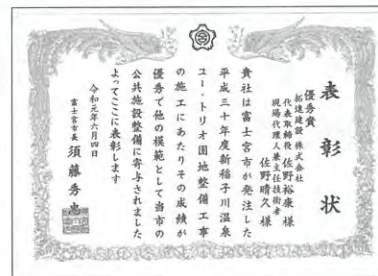 表彰状
優秀賞
拓進建設 株式会社
代表取締役 佐野裕康様
現場代理人兼主任技術者
佐野晴久様
貴社は富士宮市が発注した
平成三十年度新稲子川温泉
ユー・トリオ園地整備工事
の施工にあたりその成績が
優秀で他の模範として当市の
公共施設整備に寄与されました
よってここに表彰します
令和元年六月四日
富士宮市長 須藤秀忠